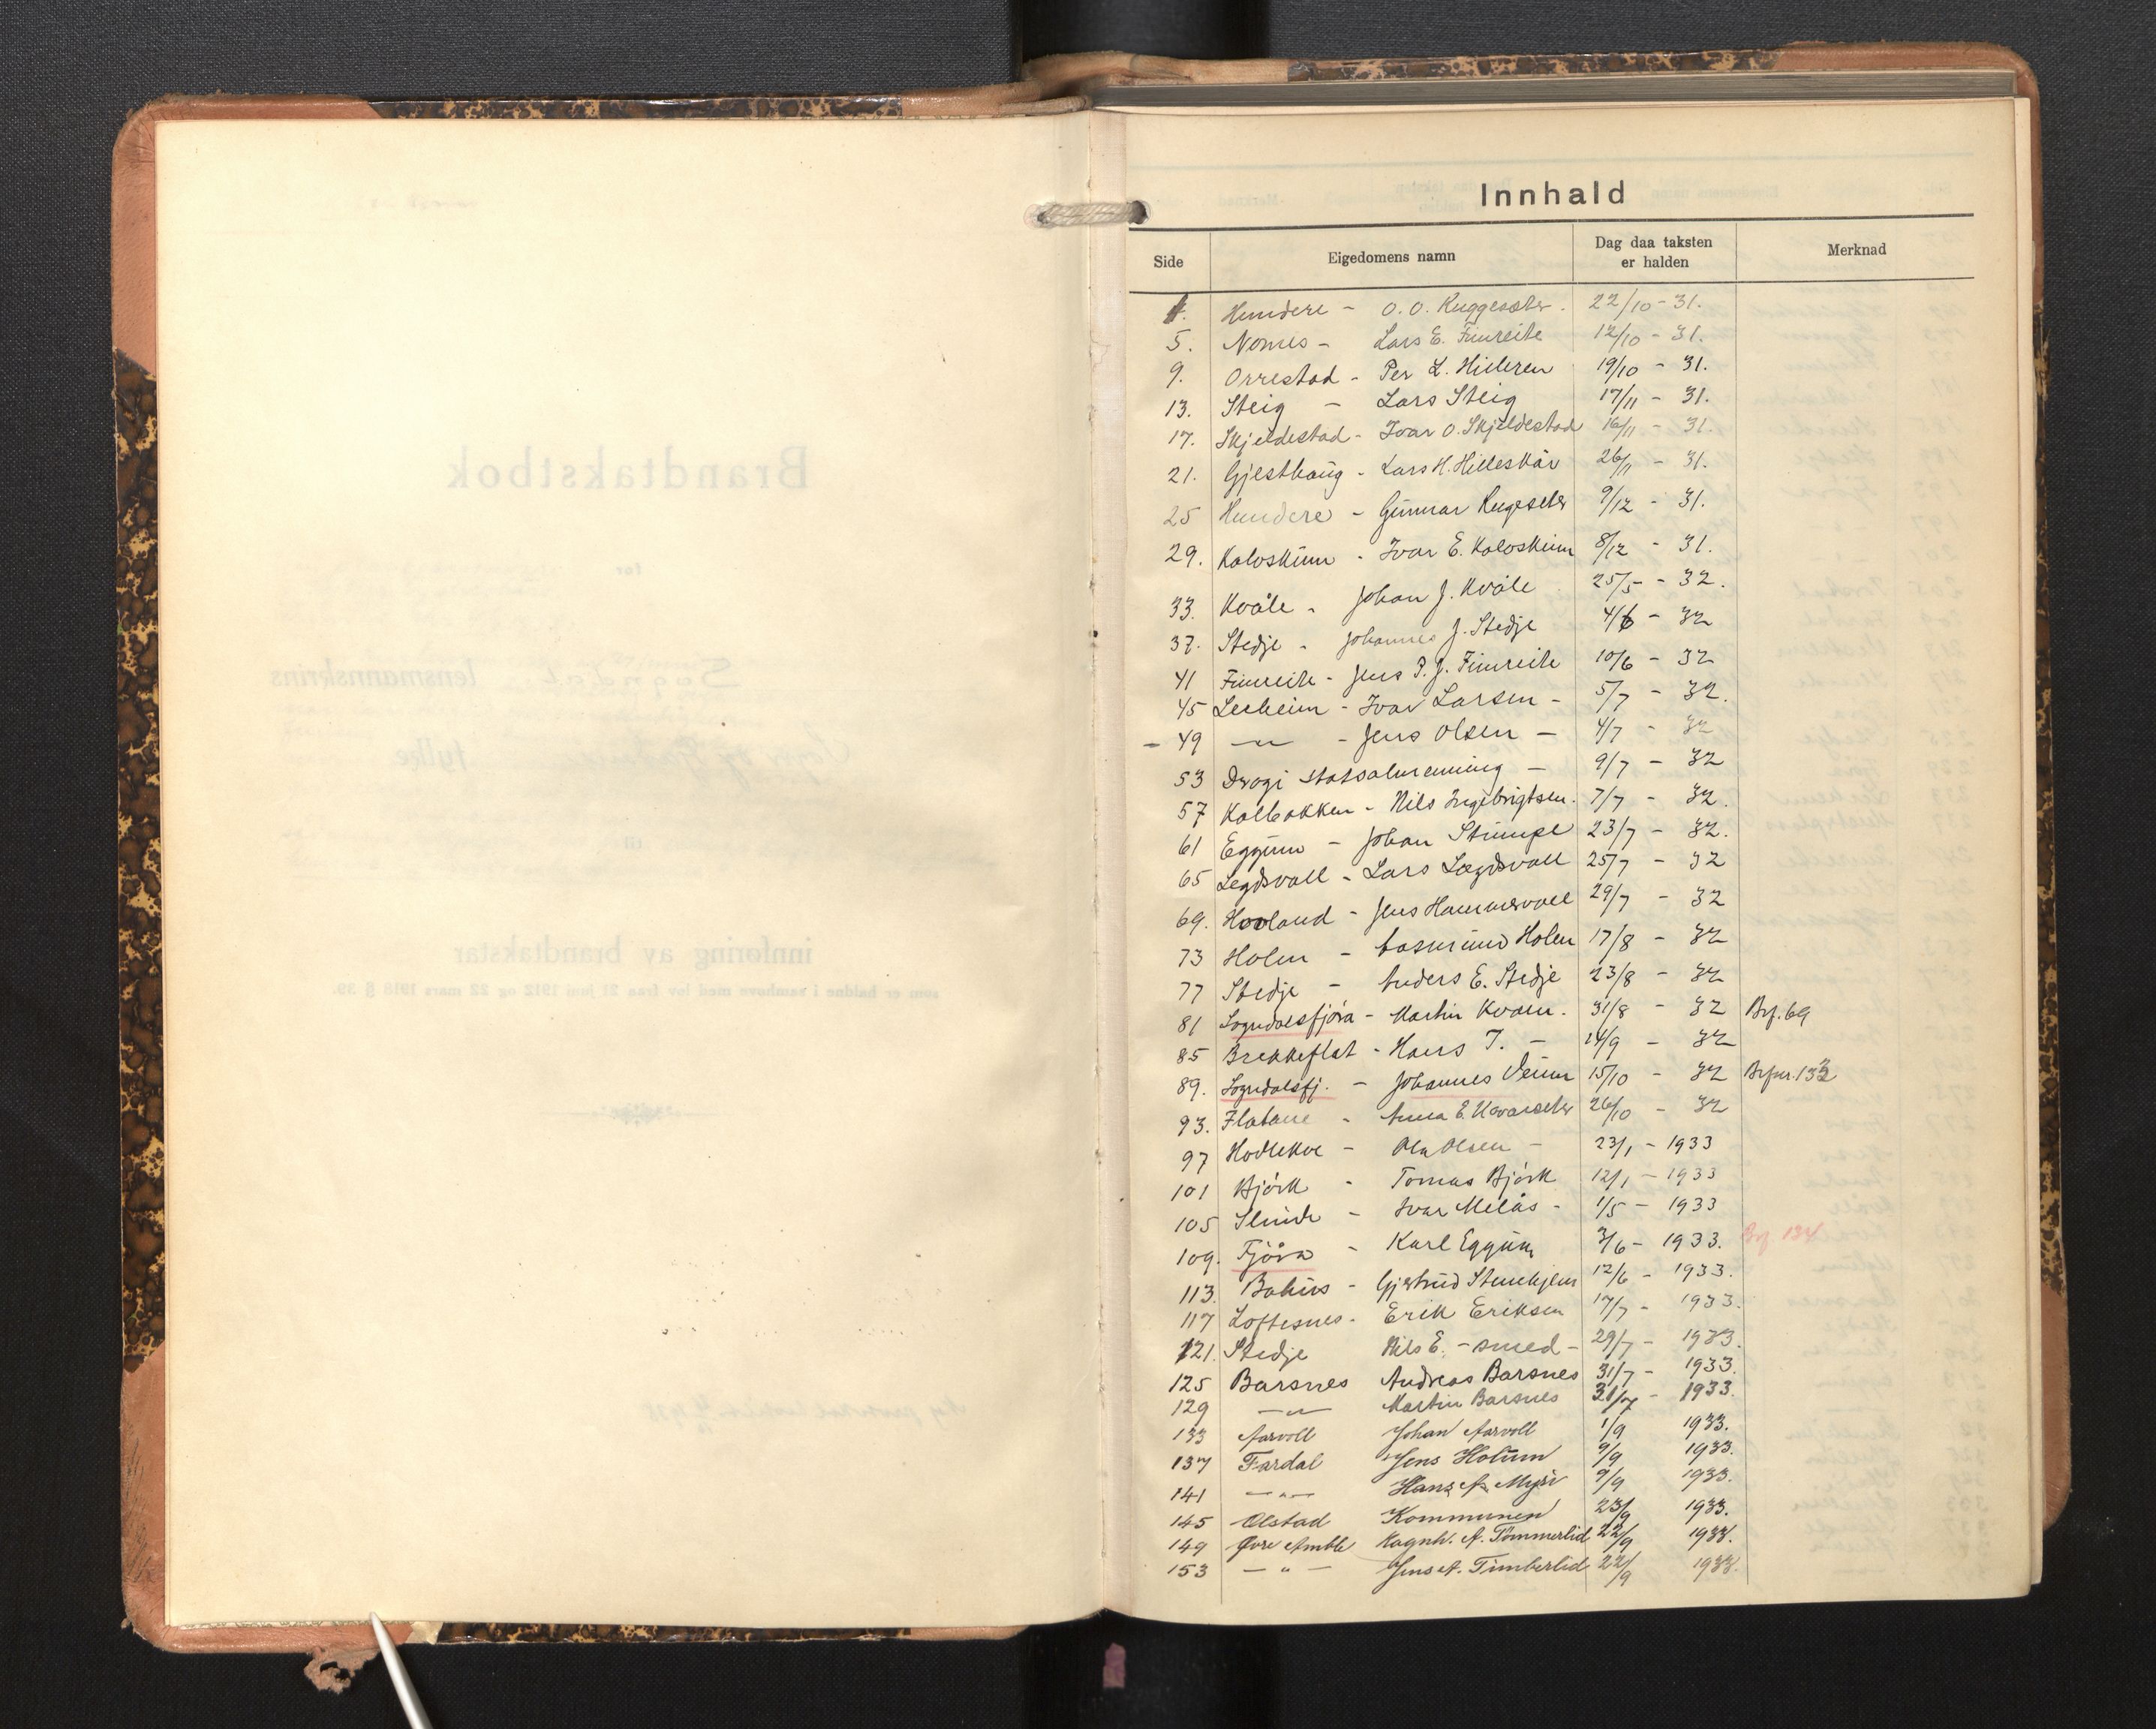 Innhald
Side Eigedomens namn Dag daa taksten er halden Merknad
1. Hundere - O.O. Ruggesæter. 22/10 - 31.
5. Nornes - Lars E. Fimreite 12/10 - 31.
9. Orrestad - Per L. Hilleren 19/10 - 31.
13. Steig - Lars Steig 17/11 - 31.
17. Skjeldestad - Ivar O. Skjeldestad 16/11 - 31.
21. Gjesthaug - Lars H. Hilleskår 26/11 - 31.
25 Hundere - Gunnar Rugeseter 9/12 - 31.
29. Kaloskinn - Ivar E. Kaloskinn 8/12 - 31.
33. Kvåle - Johan J. Kvåle 25/5 - 32.
37. Stedje - Johannes J. Stedje 4/6 - 32
41 Fimreite - Jens P. J. Fimreite 10/6 - 32
45 Leeheim - Ivar Larsen - 5/7 - 32.
- 49 -"- - Jens Olsen - 4/7 - 32
53 Drægi statsalmenning - 9/7 - 32
57 Kalbakken - Nils Ingebrigtsen. 7/7 - 32.
61 Eggum - Johan Stumpe 23/7 - 32.
65 Legdsvoll - Lars Lægdsvoll 25/7 - 32
69. Hovland - Jens Hammervoll 29/7 - 32
73 Holen - Aasmund Holen 17/8 - 32
77 Stedje - Anders E. Stedje 23/8 - 32
81 Sogndalsfjøra - Martin Kvam. 31/8 - 32 Brf. 69
85 Brekkeflat - Hans T. - 14/9 - 32
89. Sogndalsfj. - Johannes Venm 15/10 - 32 Brfnr. 133
93. Flatane - Anna E. Kvarseter 26/10 - 32
97 Hodlekve - Ola Olsen - 23/1 - 1933
101 Bjørk - Tomas Bjørk 12/1 - 1933
105 Slinde - Ivar Melås - 1/5 - 1933
109. Fjøra - Karl Eggum 3/6 - 1933. Brf 134
113. Bahus - Gjertrud Stenehjem 12/6 - 1933.
117 Loftesnes. Erik Eriksen 17/7 - 1933.
121. Stedje Nils E. - smed - 29/7 - 1933.
125 Barsnes Andreas Barsnes 31/7 - 1933.
129 -"- Martin Barsnes 31/7 - 1933.
133 Aarvoll Johan Aarvoll 1/9 1933.
137 Fardal Jens Holum 9/9 1933.
141 -"- Hans A. Myri 9/9 1933.
145 Olstad Kommunen 23/9 1933.
149 Øvre Amble Ragnh. A. Tømmerlid 22/9 1933.
153 - " - Jens A. Timberlid 22/9 1933.